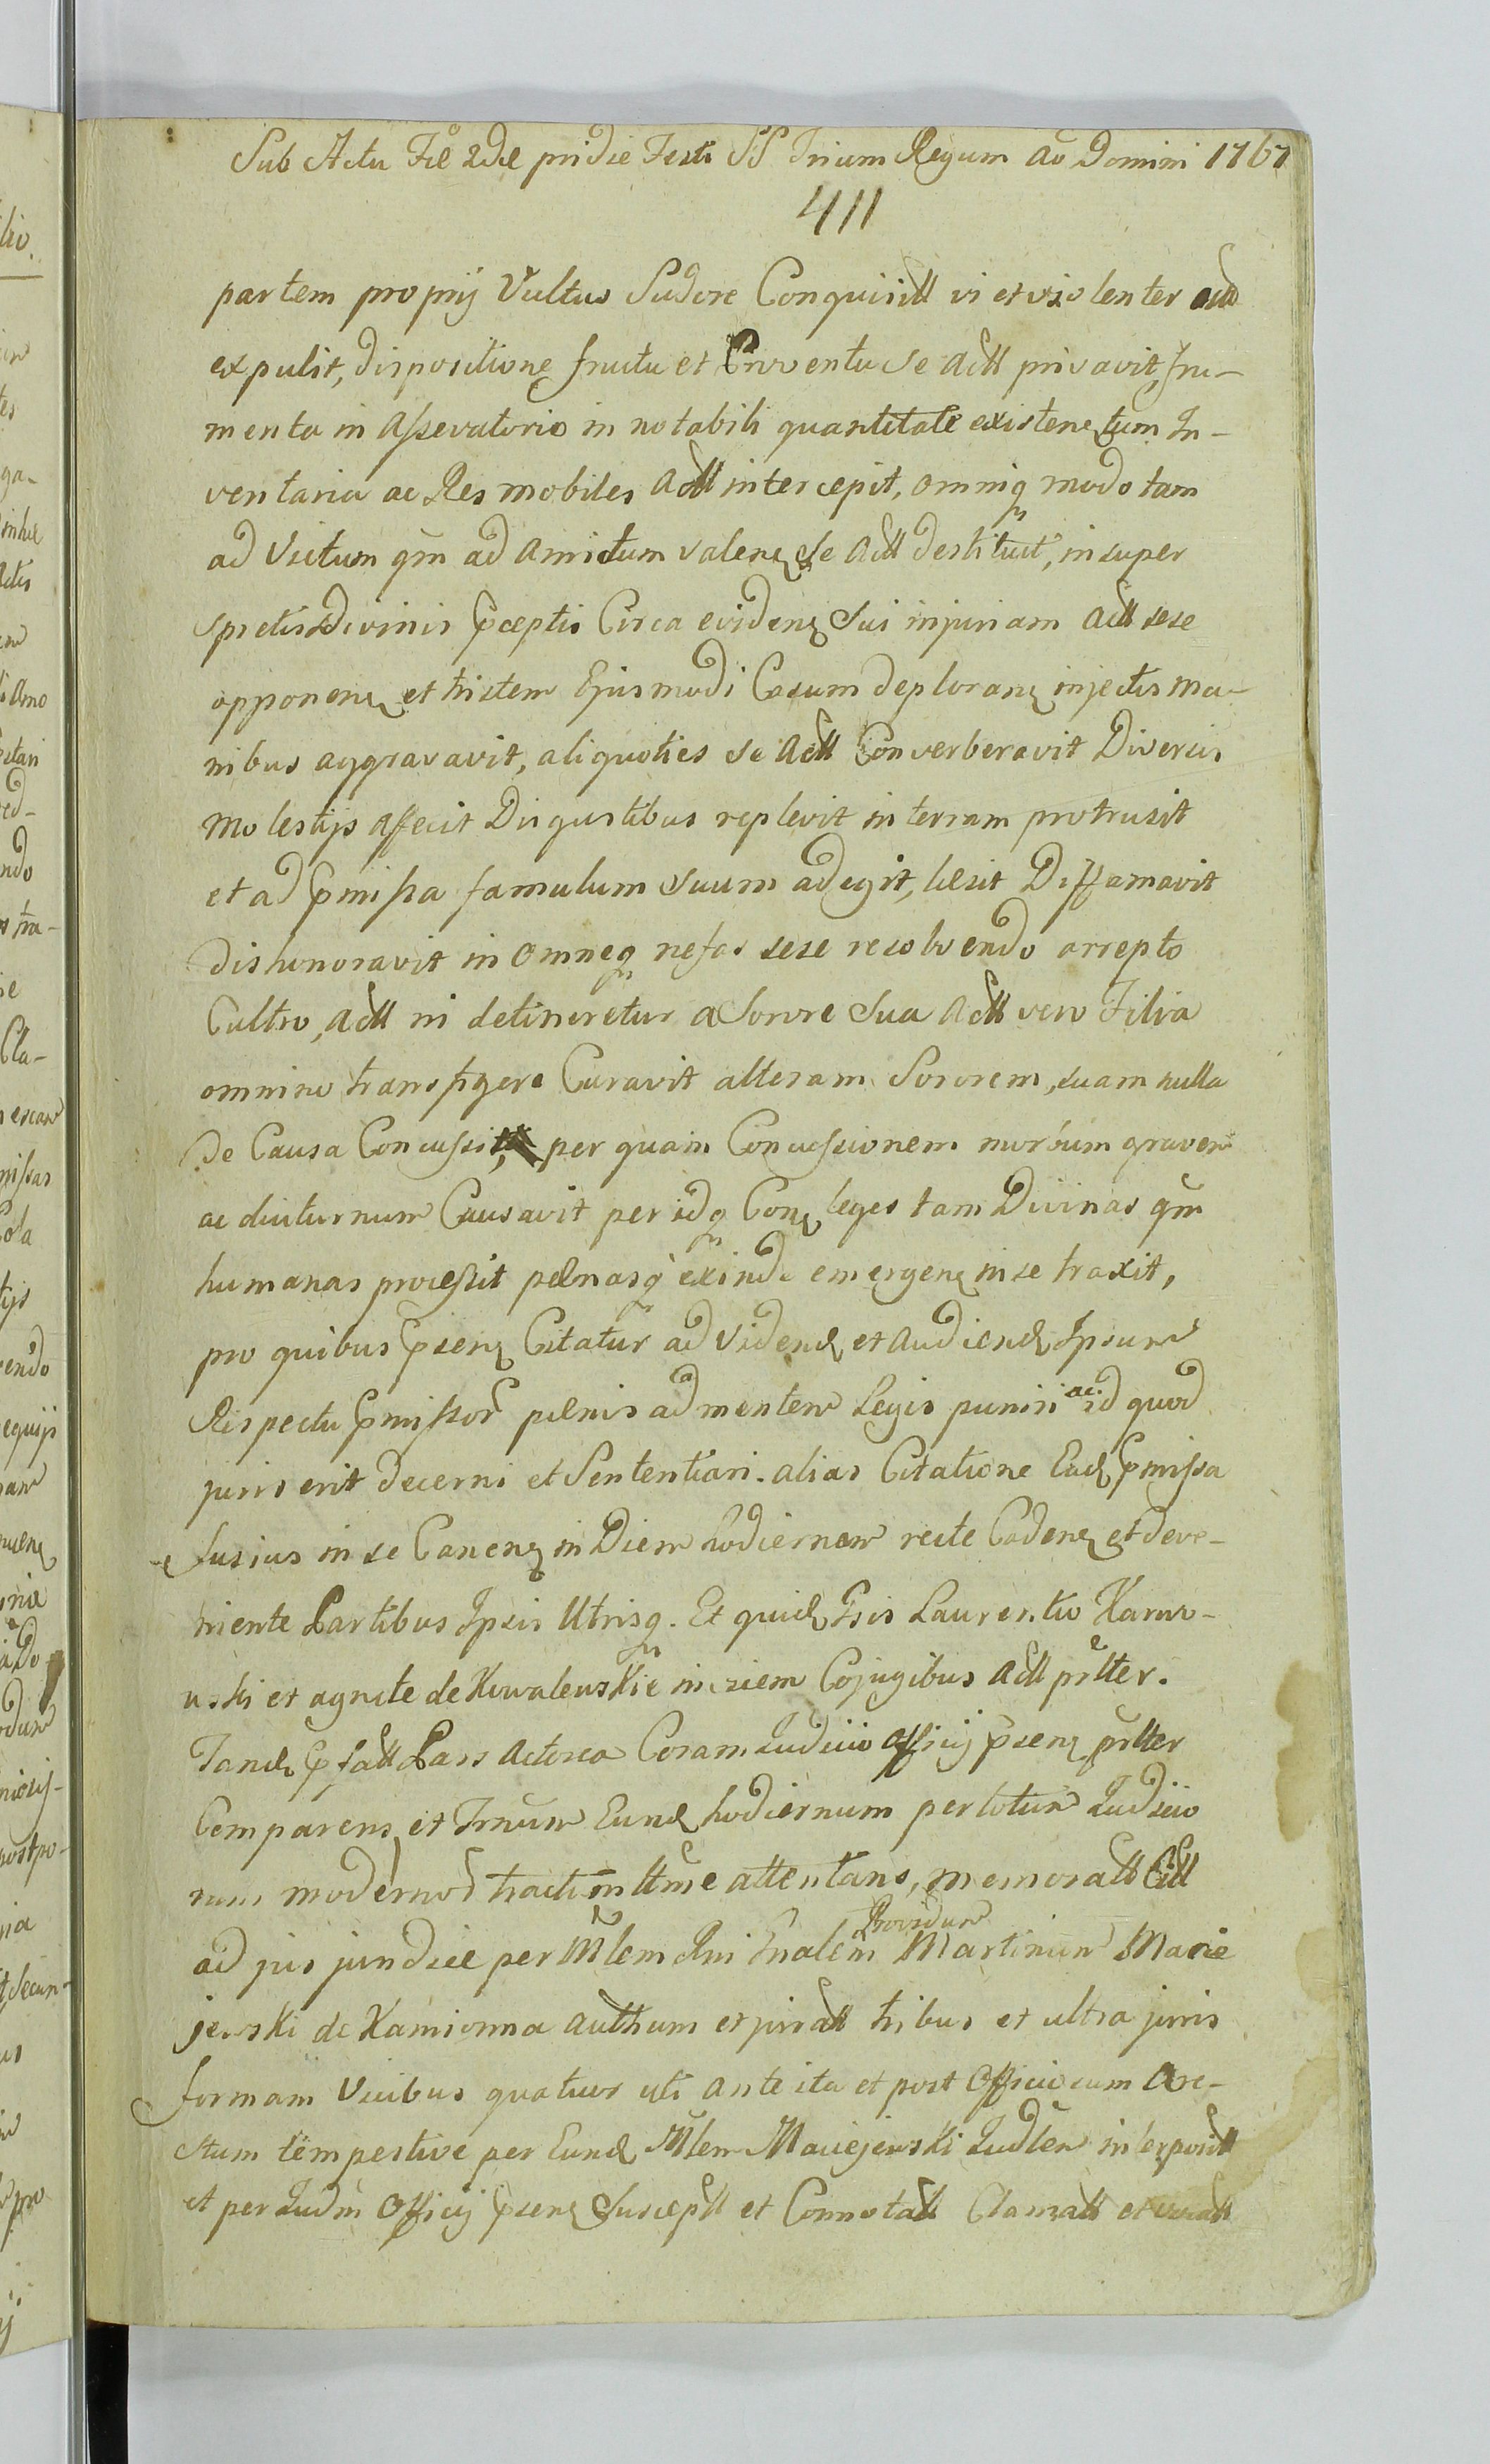 Sub Actu Fæ 2dæ pridie Festi SS Trium Regum Ao Domini 1767
411
partem proprij Vultus Sudore Conquisitt vi et violenter
expulit, dispositione fructu et Proventu se Actt privavit, fru-
menta in Asservatorio in notabili quantitate existenę tum In-
ventaria ac Res mobiles Actt intercepit, omniq modo tam
ad Victum qm ad Amictum valenę se Actt destituit, insuper
spretis Divinis Pceptis Circa evidenę sui injuriam Actt sese
opponenę et tristem Ejusmodi Casum deploranę injectis ma-
nibus aggravavit, aliquoties se Actt Converberavit Diversis
Molestijs affecit Disgustibus replevit in terram protrusit
et ad Pmissa famulum suum adegit, læsit Diffamavit
dishonoravit in Omneq nefas sese resolvendo arrepto
Cultro, Actt ni detineretur a Sorore Sua Actt vero Filia
omnino transfigere Curavit alteram Sororem, suam nulla
de Causa Concussit, per quam Concussionem morbum gravem
ac diuturnum Causavit per idq Conę leges tam Divinas qm
humanas processit pœnasq exinde emergenę in se traxit,
pro quibus Psenę Citatur ad Videnę et Audienę Ipsum
Respectu Pmissor pœnis ad mentem Legis puniri ac id quod
juris erit decerni et Sententiari. alias Citatione Eadę Pmissa
fusius in se Canenę in Diem hodiernam recte Cadenę et deve-
niente Partibus Ipsis Utrisq. Et quidę Fsis Laurentio Karw-
uski et Agnete de Kowalewskie inviem Cojugibus Actt prlter.
Tandę Pfatt Pars Actorea Coram Judicio Officij Psenę prlter
Comparens et Trnum Eundę hodiernum per totum Judicio
rum modernor tractum ltme attentans, memoratt Citt
ad jus jurdice per Mlem Rni Gnalem Providum Martinum Macie
jewski de Kamionna Authum et juratt tribus et ultra juris
formam Vicibus quatuor uti ante ita et post Officio cum Are-
stum tempestive per Eundę Mlem Maciejewski Judlem interposit
et per Judm Officij Psenę Susceptt et Connotatt Clamatt et